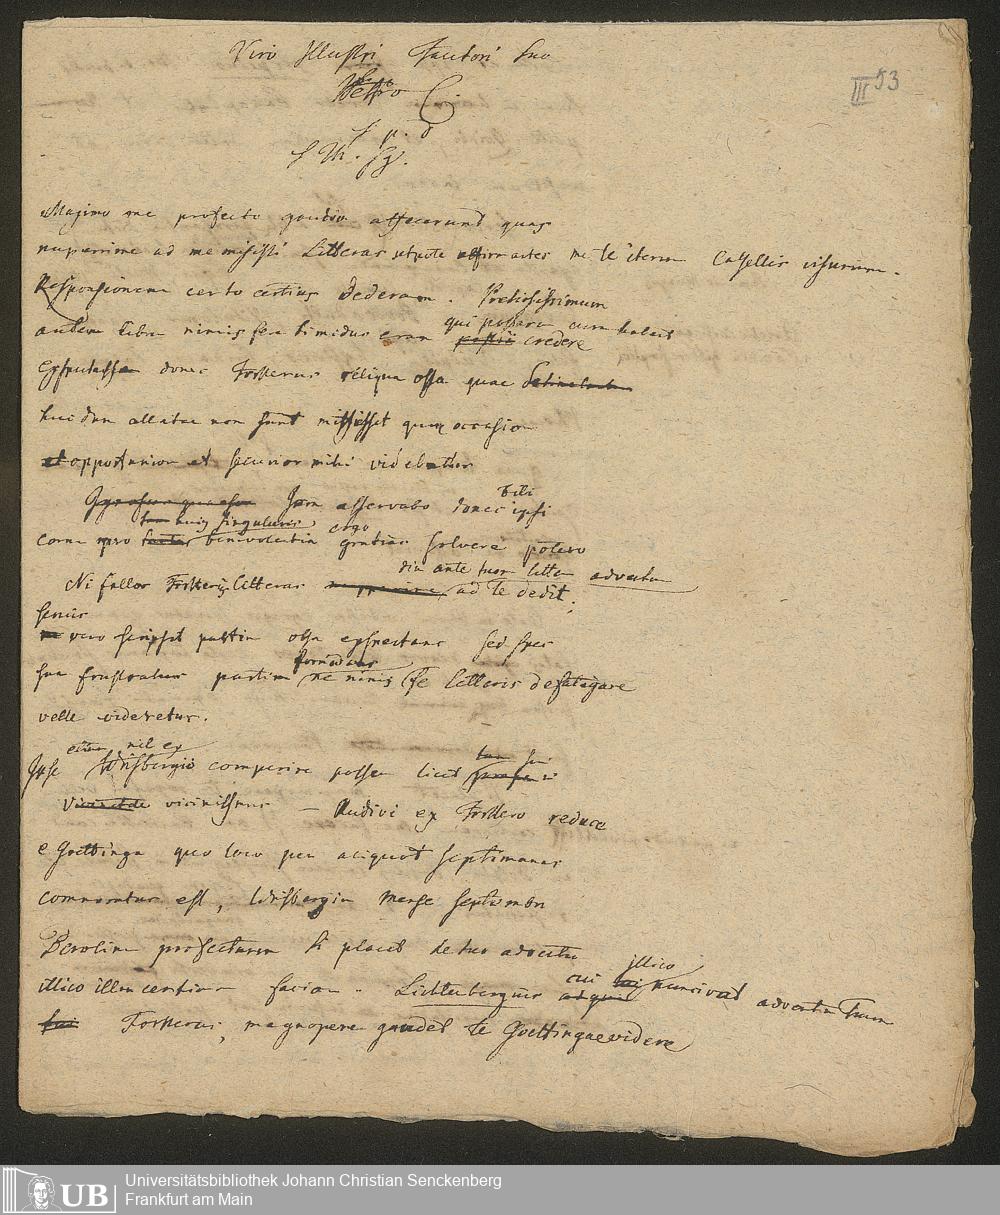 Viro Illustri Fautori suo
Petro C
s. p. d
S Th. Sg.
III 53
Maximo me profecto gaudio affecerunt quas
nuperrime ad me misisti Litteras utpote affirmantes me te iterum Casellis visurum.
Responsionem certo certius dederam. Pretiosissimum
autem librum nimis fere timidus eram qui possem cum tabell
credere
donec Forsterus reliqua ossa quae
huc dum allatae non sunt misisset quum occasio
opportunior et securior mihi videbatur
Jam asservabo donec Tibi ipsi
coram pro tam singulari ergo benevolentia gratias solvere potero
Ni fallor Forsterus litteras diu ante tuum adventum ad te dedit,
serius
vero scripsit partim ossa expectans sed spes
sua frustratus partim ne nimis se litteris defatigare
velle videretur.
Ipse etiam nil ex Wrisbergio comperire possem licet sim
vicinissimus – Audivi ex Forstero reduce
e Goettinga quo loco per aliquot septimanas
commoratus est, Wrisbergium mense septembri
Berolinum profecturum si placet de tuo adventu
illico illum certiorem faciam. Lichtenbergius cui illico nunciavit adventum Tuum
Forsterus, magnopere gaudet te Goettingae videre
Universitätsbibliothek Johann Christian Senckenberg
Frankfurt am Main
UB